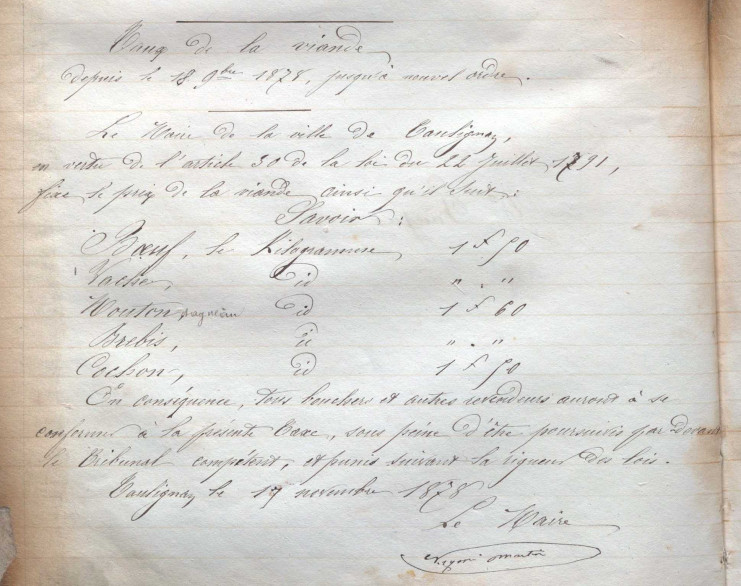 Taux de la viande
depuis le 18 9bre 1878, jusqu'à nouvel ordre.
Le Maire de la ville de Taulignan,
en vertu de l'article 30 de la loi du 22 Juillet 1791,
fixe le prix de la viande ainsi qu'il suit:
Savoir:
Bœuf, le Kilogramme 1 F 50
Vache, id " . "
Mouton, agneau id 1 F 60
Brebis, id " . "
Cochon, id 1 F 50
En conséquence, tous bouchers et autres revendeurs auront à se
conformer à la présente taxe, sous peine d'être poursuivis par devant
le Tribunal compétent, et punis suivant la rigueur des lois.
Taulignan le 17 novembre 1878
Le Maire